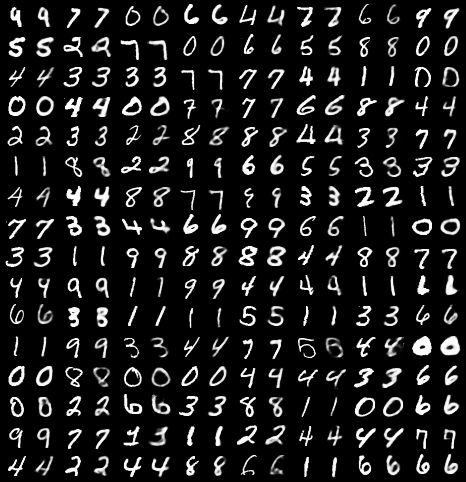 9 9 7 7 0 0 6 6 4 4 7 7 6 6 9 9
5 5 2 2 7 7 0 0 6 6 5 5 8 8 0 0
4 4 3 3 3 3 7 7 7 7 4 4 1 1 0 0
0 0 4 4 0 0 7 7 7 7 6 6 8 8 4 4
2 2 3 3 2 2 8 8 8 8 4 4 3 3 7 7
1 1 8 8 2 2 9 9 6 6 5 5 3 3 3 3
4 4 4 4 8 8 7 7 9 9 3 3 2 2 1 1
7 7 3 3 4 4 6 6 9 9 6 6 1 1 0 0
3 3 1 1 9 9 8 8 8 8 4 4 8 8 7 7
4 4 9 9 1 1 9 9 4 4 4 9 1 1 1 1
6 6 3 8 1 1 1 1 5 5 1 1 3 3 6 6
1 1 9 9 3 3 4 4 7 7 5 5 4 4 0 0
0 0 8 8 0 0 0 0 4 4 4 4 3 3 6 6
0 0 2 2 6 6 3 3 8 8 1 1 0 0 6 6
9 9 7 7 1 3 1 1 2 2 4 4 4 4 7 7
4 4 2 2 4 4 8 8 6 6 1 1 6 6 6 6